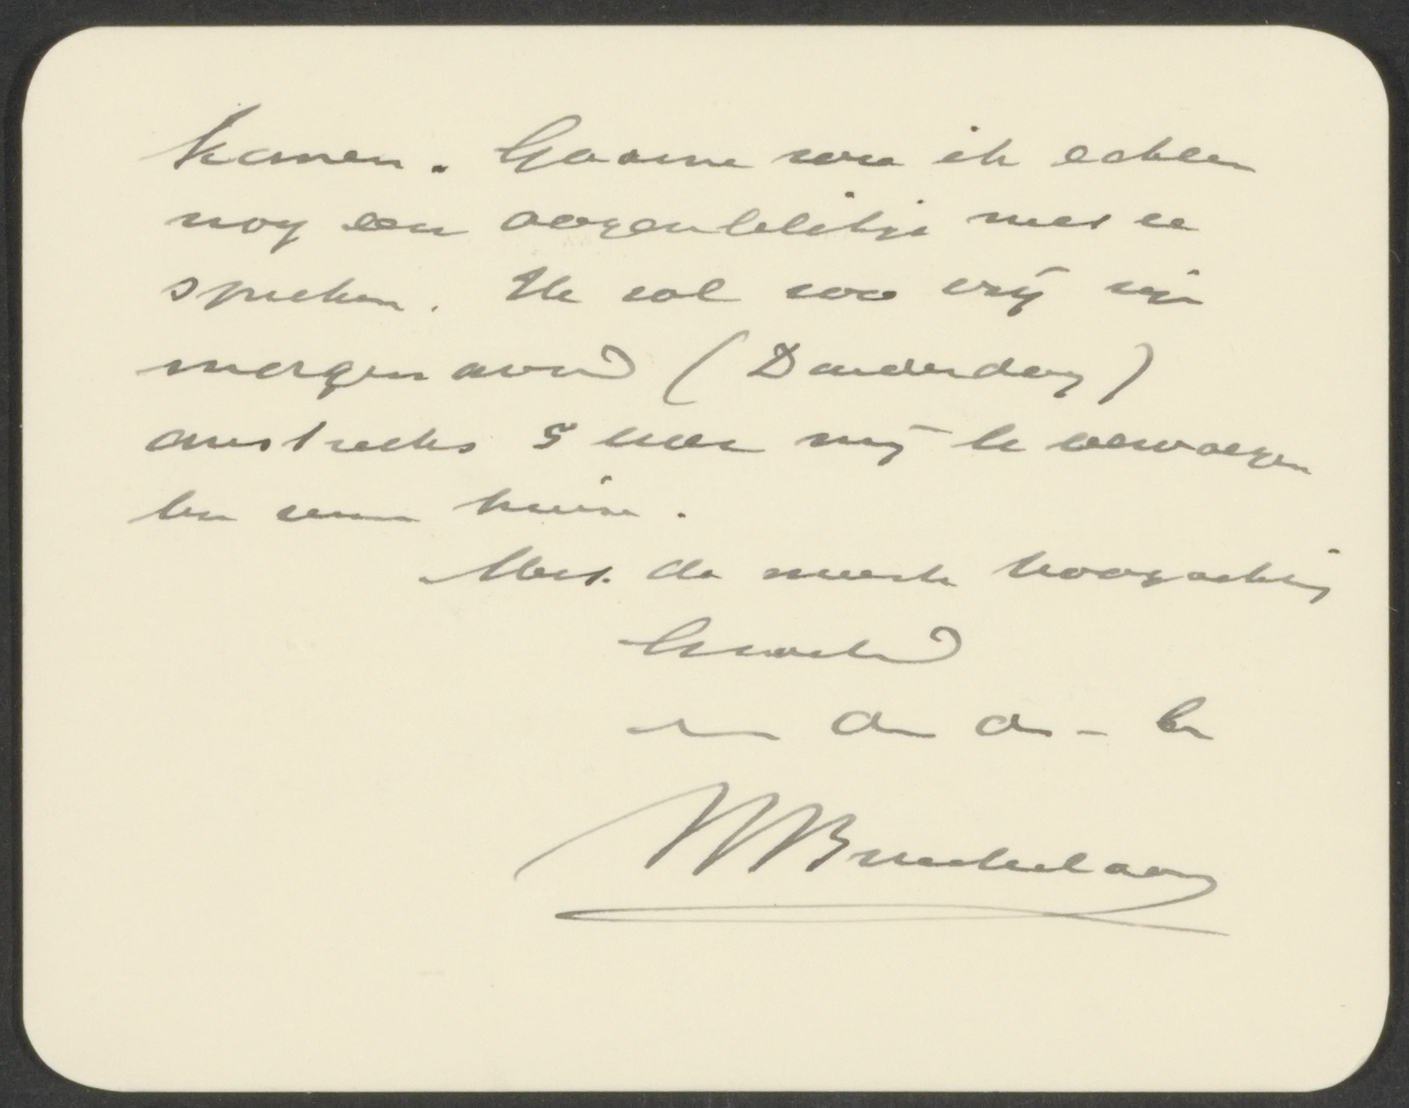 komen. Gaarne zou ik echter
nog een oogenblikje met u
spreken. Ik zal zoo vrij zijn
morgenavond (Donderdag)
omstreeks 5 uur mij te vervoegen
ten uwen huize.
Met de meeste hoogachting
heb ik